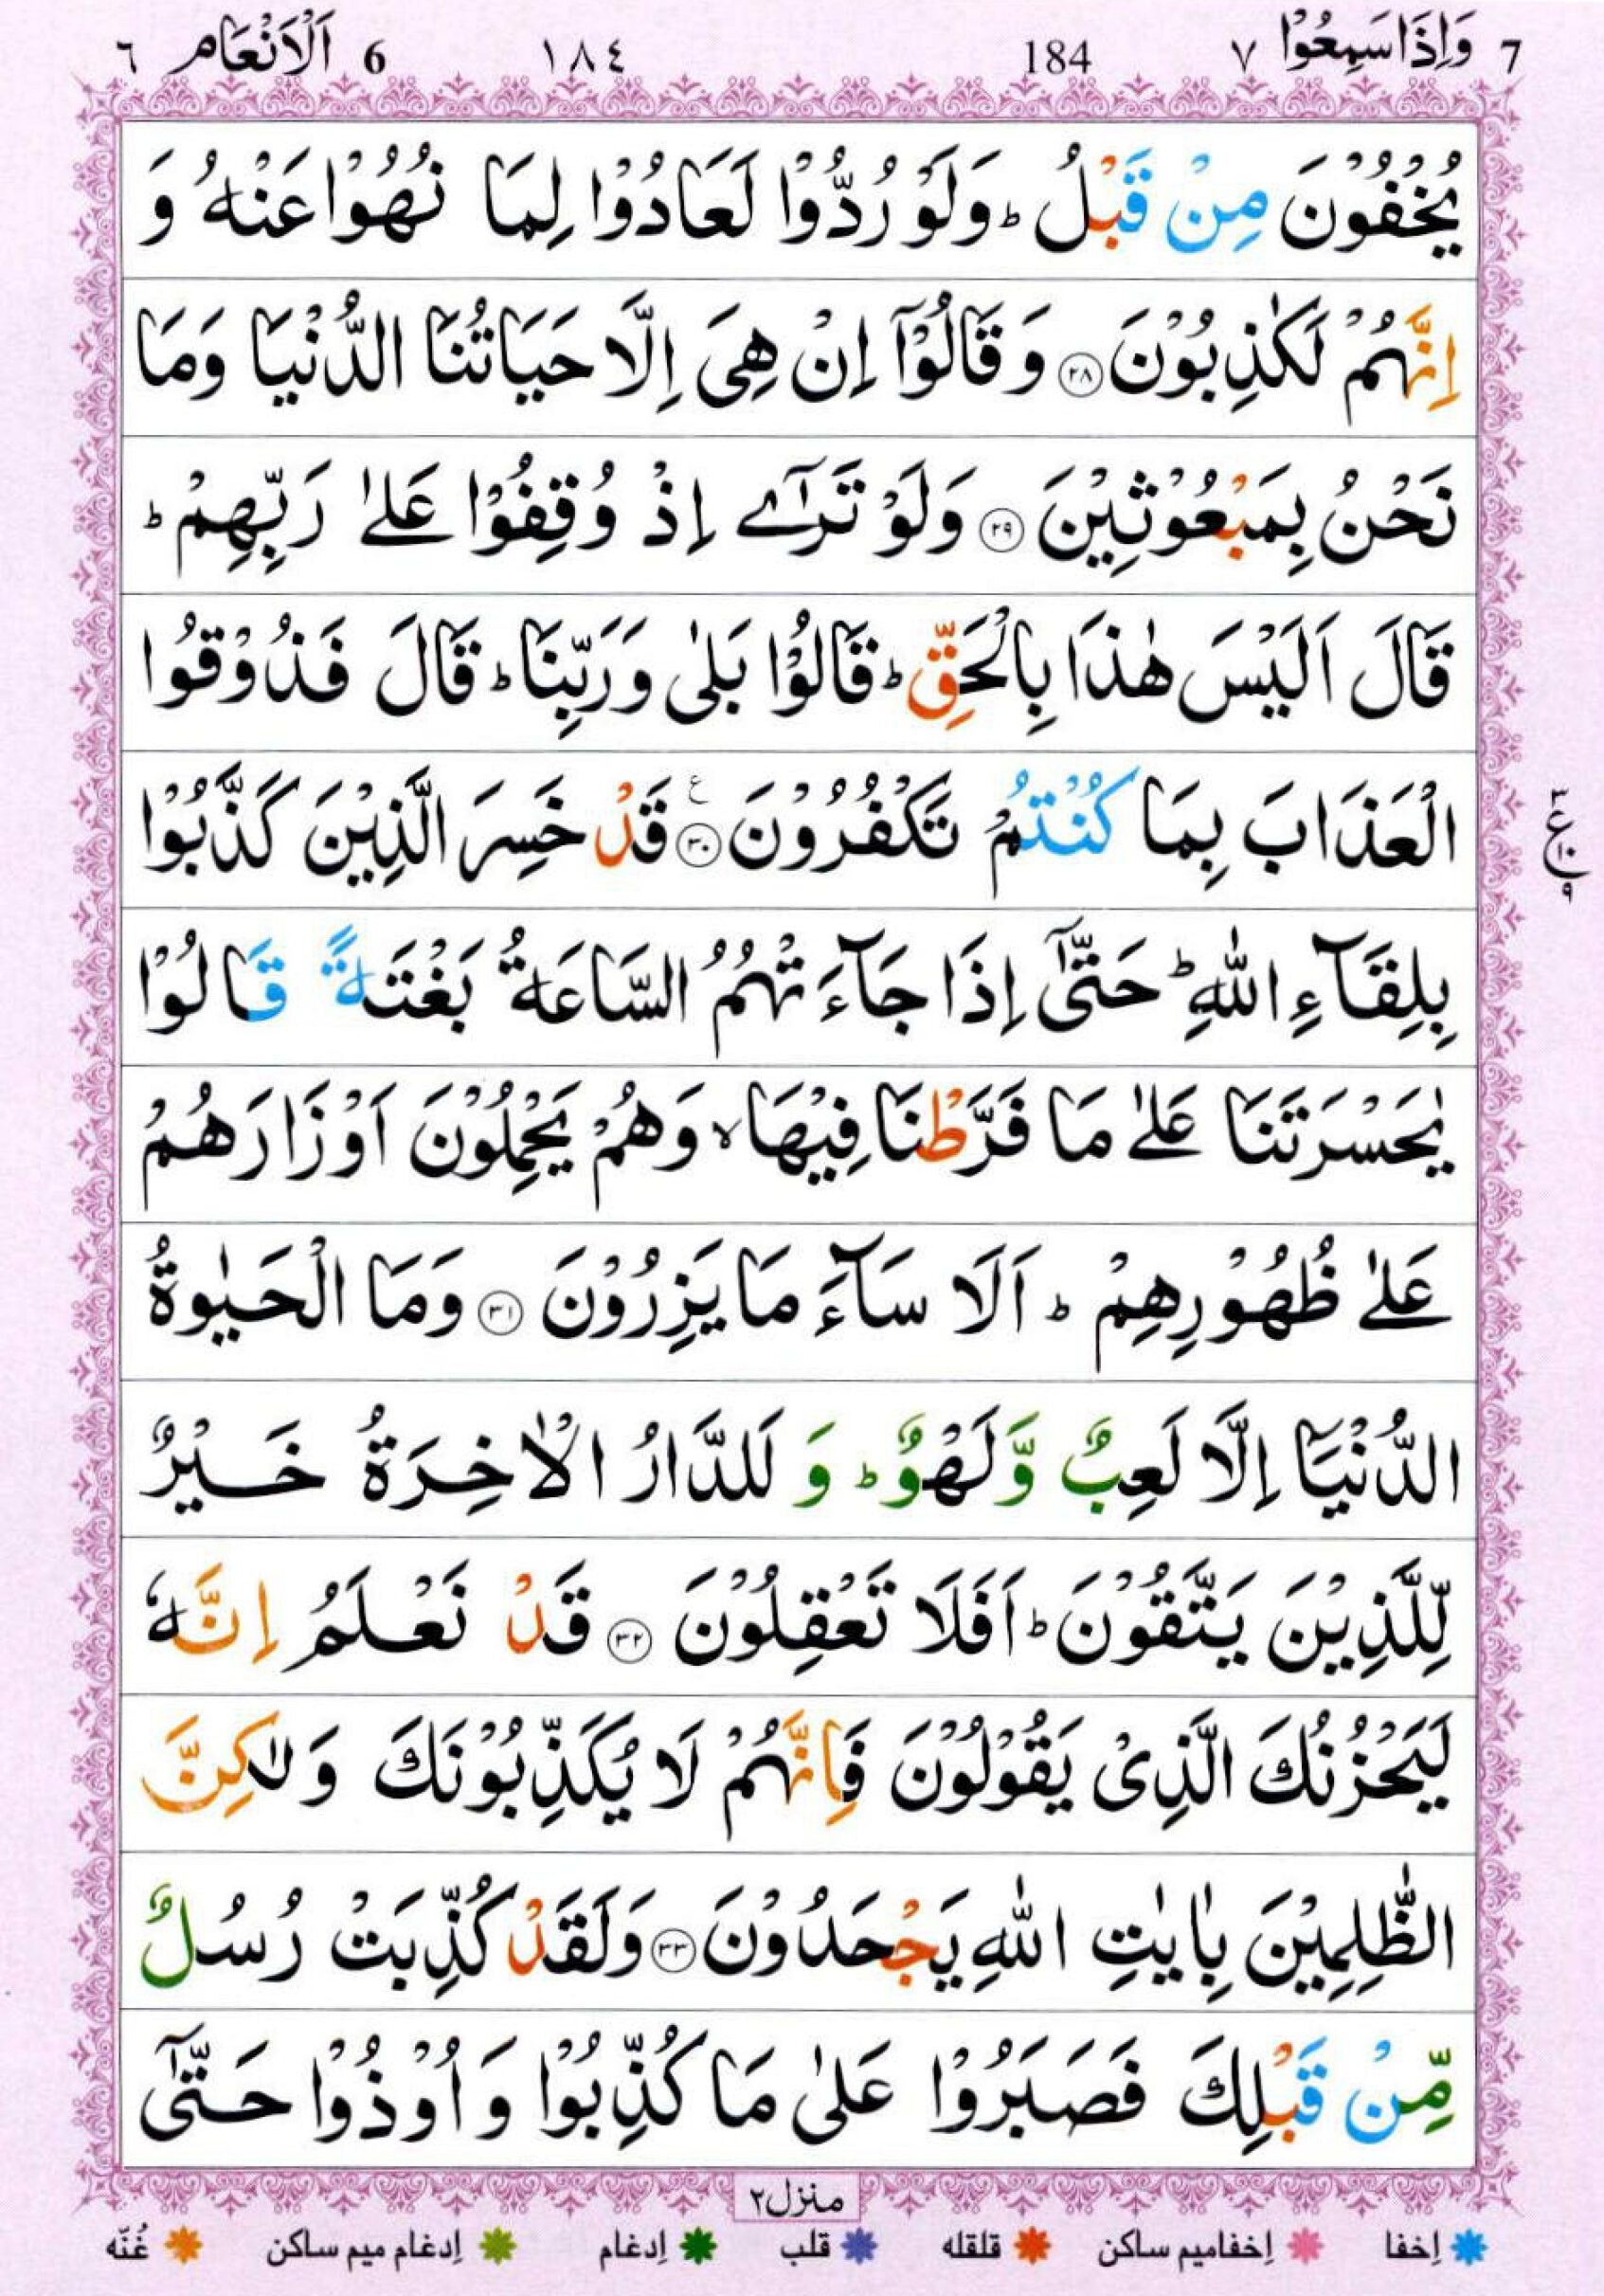 7 وَاِذَا سَمِعُوْا ٧ 184 ١٨٤ 6 اَلْاَنْعَام ٦
يُخْفُوْنَ مِنْ قَبْلُ ؕ وَلَوْ رُدُّوْا لَعَادُوْا لِمَا نُهُوْا عَنْهُ وَ
اِنَّهُمْ لَكٰذِبُوْنَ ۲۸ وَ قَالُوْٓا اِنْ هِىَ اِلَّا حَيَاتُنَا الدُّنْيَا وَمَا
نَحْنُ بِمَبْعُوْثِيْنَ ۲۹ وَلَوْ تَرٰٓى اِذْ وُقِفُوْا عَلٰى رَبِّهِمْ ؕ
قَالَ اَلَيْسَ هٰذَا بِالْحَقِّ ؕ قَالُوْا بَلٰى وَرَبِّنَا ؕ قَالَ فَذُوْقُوا
الْعَذَابَ بِمَا كُنْتُمْ تَكْفُرُوْنَ ۳۰ ع قَدْ خَسِرَ الَّذِيْنَ كَذَّبُوْا
٣ ع ١٠ ٩
بِلِقَآءِ اللّٰهِ ؕ حَتّٰٓى اِذَا جَآءَتْهُمُ السَّاعَةُ بَغْتَةً قَالُوْا
يٰحَسْرَتَنَا عَلٰى مَا فَرَّطْنَا فِيْهَا ۙ وَهُمْ يَحْمِلُوْنَ اَوْزَارَهُمْ
عَلٰى ظُهُوْرِهِمْ ؕ اَلَا سَآءَ مَا يَزِرُوْنَ ۳۱ وَمَا الْحَيٰوةُ
الدُّنْيَآ اِلَّا لَعِبٌ وَّلَهْوٌ ؕ وَ لَلدَّارُ الْاٰخِرَةُ خَيْرٌ
لِّلَّذِيْنَ يَتَّقُوْنَ ؕ اَفَلَا تَعْقِلُوْنَ ۳۲ قَدْ نَعْلَمُ اِنَّهٗ
لَيَحْزُنُكَ الَّذِىْ يَقُوْلُوْنَ فَاِنَّهُمْ لَا يُكَذِّبُوْنَكَ وَلٰكِنَّ
الظّٰلِمِيْنَ بِاٰيٰتِ اللّٰهِ يَجْحَدُوْنَ ۳۳ وَلَقَدْ كُذِّبَتْ رُسُلٌ
مِّنْ قَبْلِكَ فَصَبَرُوْا عَلٰى مَا كُذِّبُوْا وَ اُوْذُوْا حَتّٰٓى
منزل۲
اِخفا اِخفامیم ساکن قلقله قلب اِدغام اِدغام میم ساکن غُنّه